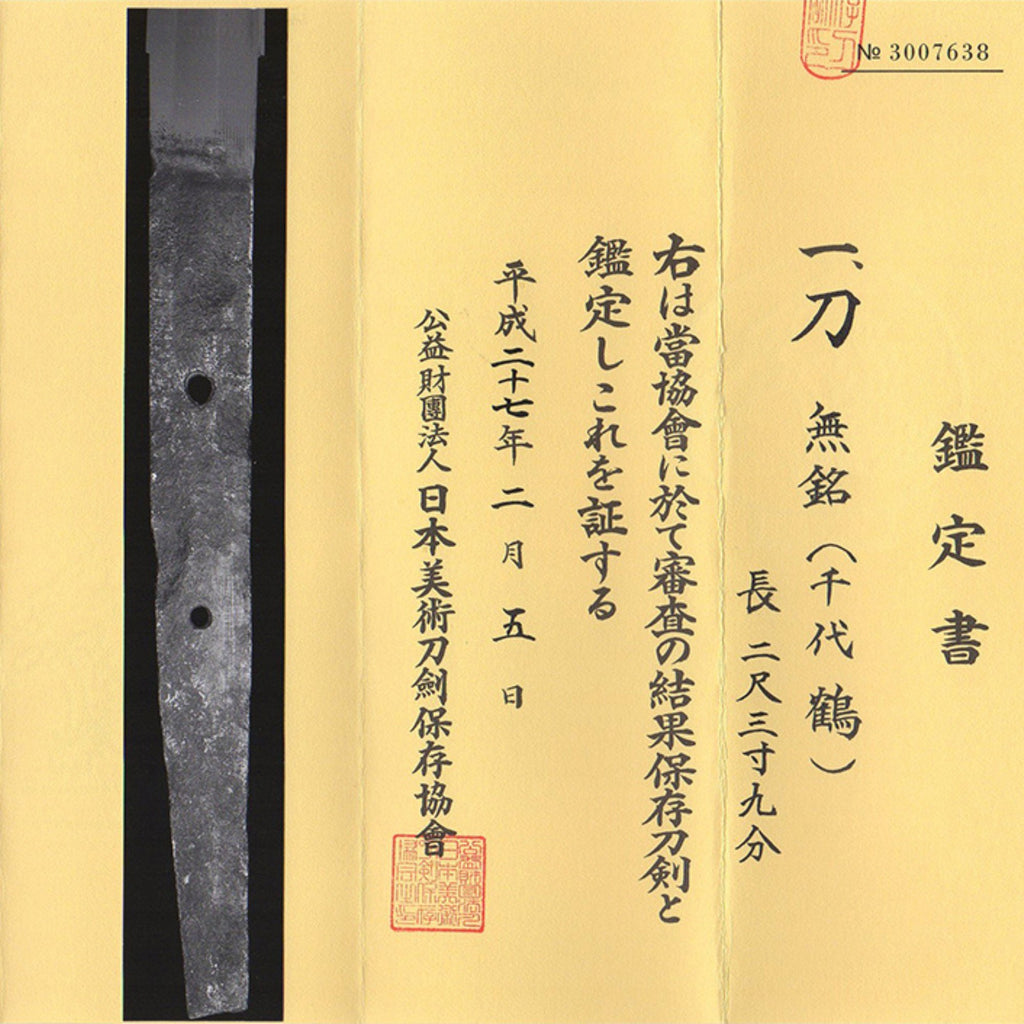 № 3007638
鑑定書
一、刀 無銘(千代鶴)
長 二尺三寸九分
右は當協會に於て審査の結果保存刀剣と
鑑定しこれを証する
平成二十七年 二月 五日
公益財團法人 日本美術刀劍保存協會